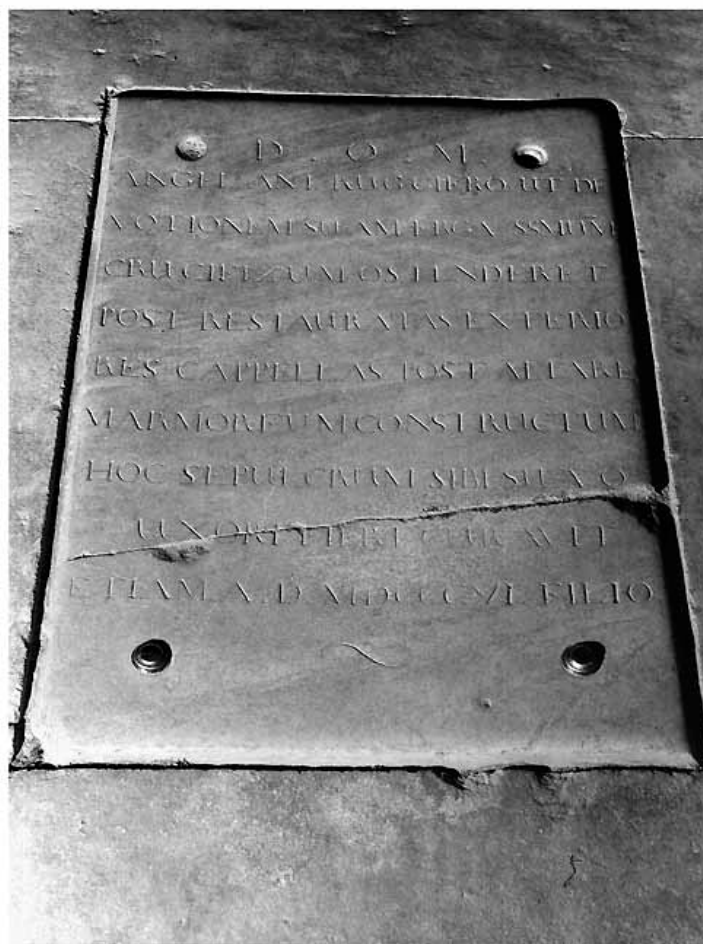 D . O . M .
ANGEL ANT RUGGIERO UT DE
VOTIONEM SUAM ERGA SSMUM
CRUCIFIXUM OSTENDERET
POST RESTAURATAS EXTERIO
RES CAPPELLAS POST ALTARE
MARMOREUM CONSTRUCTUM
HOC SEPULCRUM SIBI SUA
UXORE FIERI CURAVIT
ETIAM A. D. FILIO